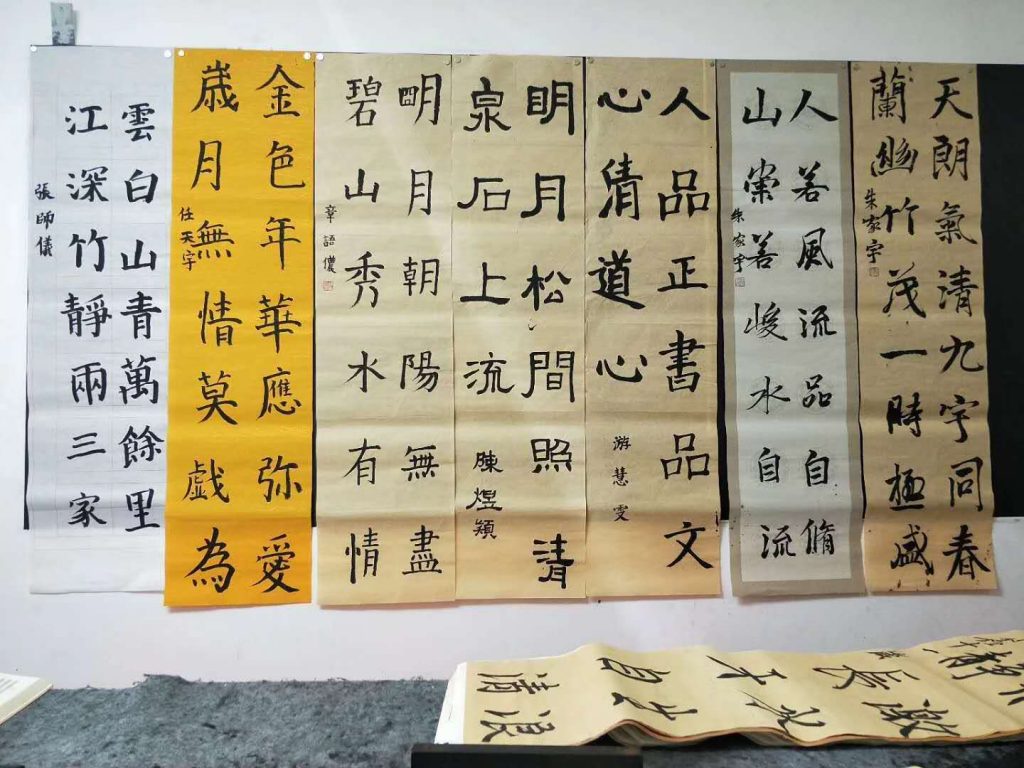 天朗氣清九宇同春
蘭幽竹茂一時極盛
朱家宇
人若風流品自脩
山崇峻水自流
朱家宇
人品正書品文
心清道心
游慧雯
明月松間照清
泉石上流
陳煜穎
明月朝陽無盡
碧山秀水有情
章語儂
金色年華應弥愛
歲月無情莫戲為
任天宇
雲白山青萬餘里
江深竹靜兩三家
張師儀
激
長
水
清浪